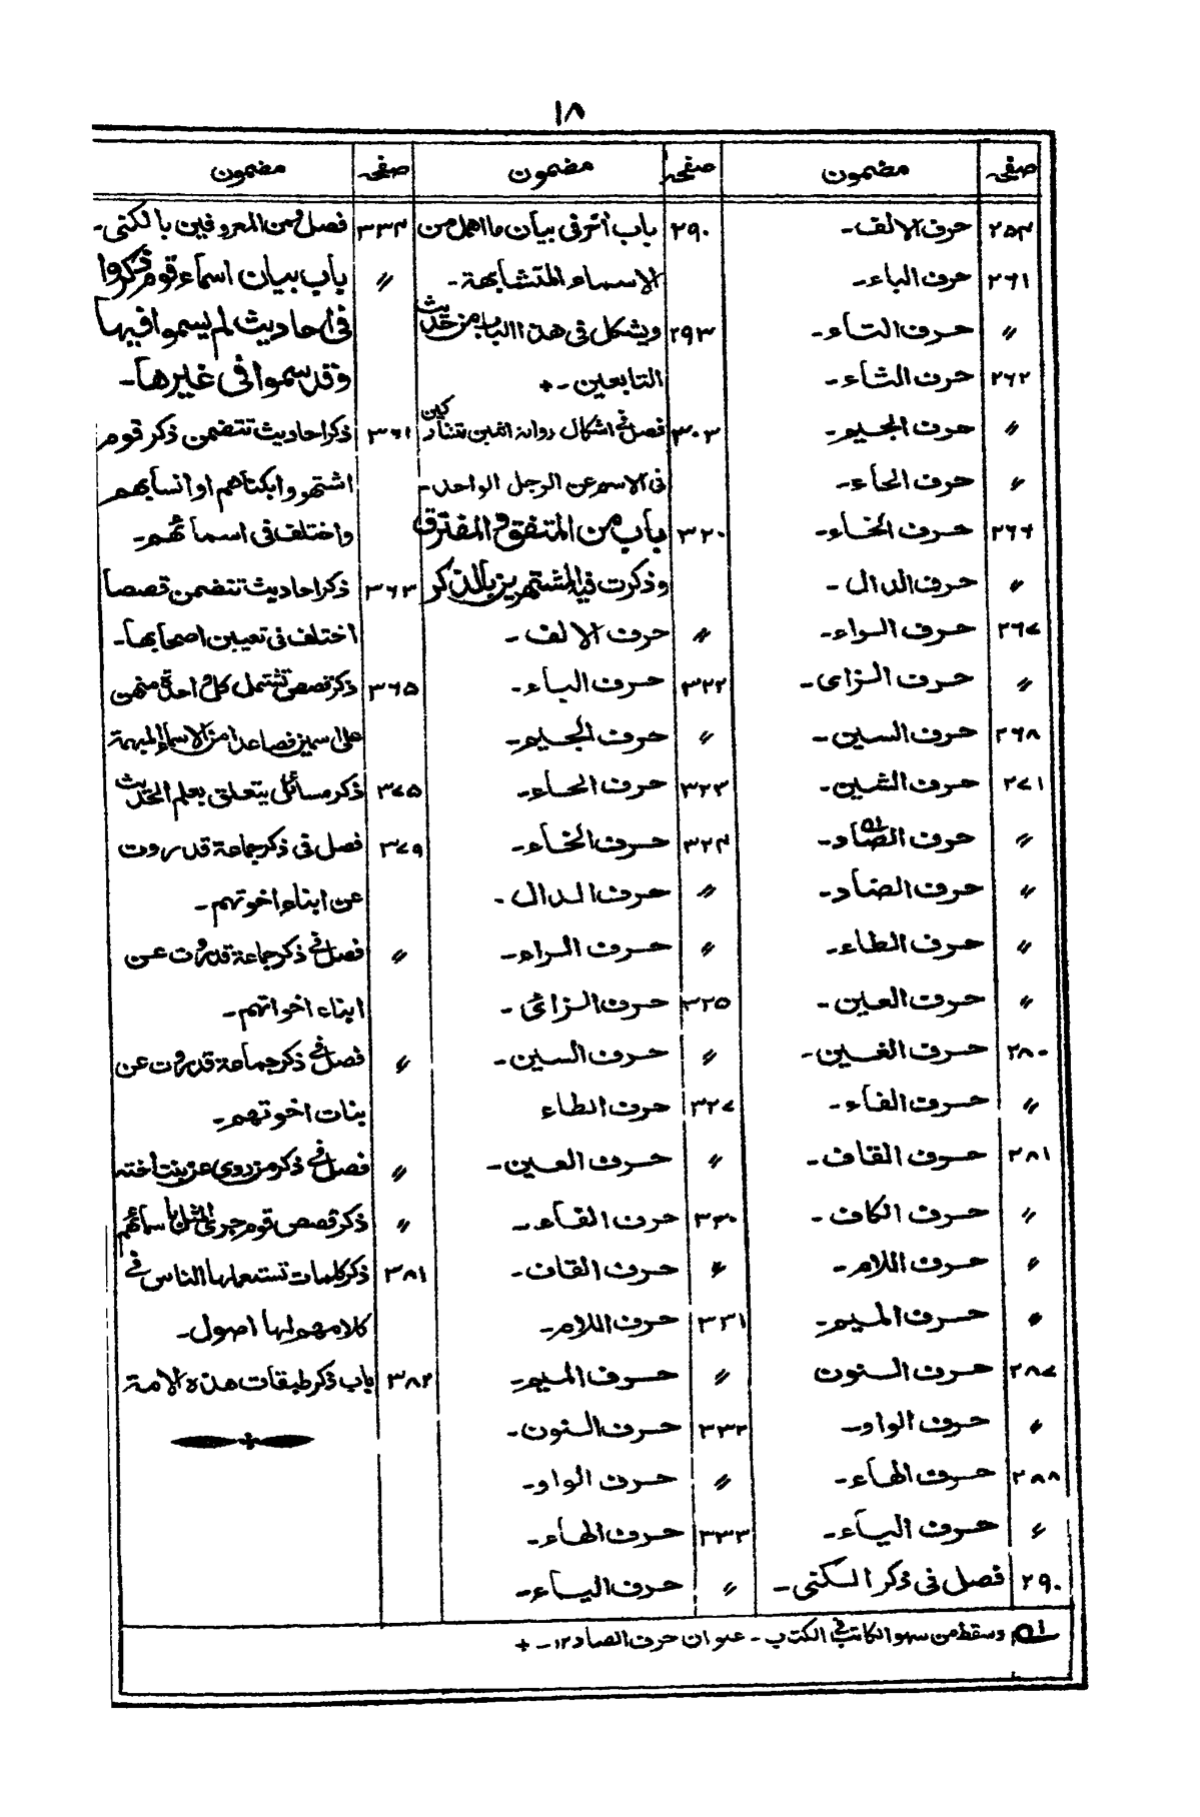 ١٨
صفحہ مضمون
٢٥٤ حرف الالف۔
٢٦١ حرف الباء۔
〃 حرف التاء۔
٢٦٢ حرف الثاء۔
〃 حرف الجيم۔
〃 حرف الحاء۔
٢٦٦ حرف الخاء۔
〃 حرف الدال۔
٢٦٧ حرف الراء۔
〃 حرف الزای۔
٢٦٨ حرف السين۔
٢٧١ حرف الشين۔
〃 حرف الصاد۔
〃 حرف الضاد۔
〃 حرف الطاء۔
〃 حرف العين۔
٢٨٠ حرف الغين۔
〃 حرف الفاء۔
٢٨١ حرف القاف۔
〃 حرف الكاف۔
〃 حرف اللام۔
〃 حرف الميم۔
٢٨٧ حرف النون
〃 حرف الواو۔
٢٨٨ حرف الهاء۔
〃 حرف الياء۔
٢٩٠ فصل فى ذكر الكنى۔
صفحہ مضمون
٢٩٠ باب آخر فى بيان ما اهمل من
الاسماء المتشابهة۔
٢٩٣ ويشكل فى هذا الباب من حديث
التابعين۔+
٣٠٣ فصل فى اشكال رواية اثنين تشاركين
فى الاسم عن الرجل الواحد۔
٣٢٠ باب من المتفق و المفترق
وذكرت فيه المشتهرين بالذكر
〃 حرف الالف۔
٣٢٢ حرف الباء۔
〃 حرف الجيم۔
٣٢٣ حرف الحاء۔
٣٢٤ حرف الخاء۔
〃 حرف الدال۔
〃 حرف الراء۔
٣٢٥ حرف الزائى۔
〃 حرف السين۔
٣٢٧ حرف الطاء
〃 حرف العين۔
٣٣٠ حرف الفاء۔
〃 حرف القاف۔
٣٣١ حرف اللام۔
〃 حرف الميم۔
٣٣٢ حرف النون۔
〃 حرف الواو۔
٣٣٣ حرف الهاء۔
〃 حرف الياء۔
صفحہ مضمون
٣٣٤ فصل من المعروفين بالكنى۔
〃 باب بيان اسماء قوم ذكروا
فى احاديث لم يسموا فيها
وقد سموا فى غيرها۔
٣٦١ ذكر احاديث تتضمن ذكر قوم
اشتهروا بكناهم او انسابهم
واختلف فى اسمائهم۔
٣٦٣ ذكر احاديث تتضمن قصصا
اختلف فى تعيين اصحابها۔
٣٦٥ ذكر قصص تشتمل كل واحدة منهن
على اسمين فصاعدا من الاسماء المبهمة
٣٧٥ ذكر مسائل يتعلق بعلم الحديث
٣٧٩ فصل فى ذكر جماعة قد روت
عن ابناء اخوتهم۔
〃 فصل فى ذكر جماعة قد روت عن
ابناء اخواتهم۔
〃 فصل فى ذكر جماعة قد روت عن
بنات اخوتهم۔
〃 فصل فى ذكر من روى عن بنت اخته
〃 ذكر قصص قوم جرى المثل باسمائهم
٣٨١ ذكر كلمات تستعملها الناس فى
كلامهم لها اصول۔
٣٨٢ باب ذكر طبقات هذه الامة
وسقط من سهو الكاتب فى الكتاب۔ عنوان حرف الصاد ١٢۔+